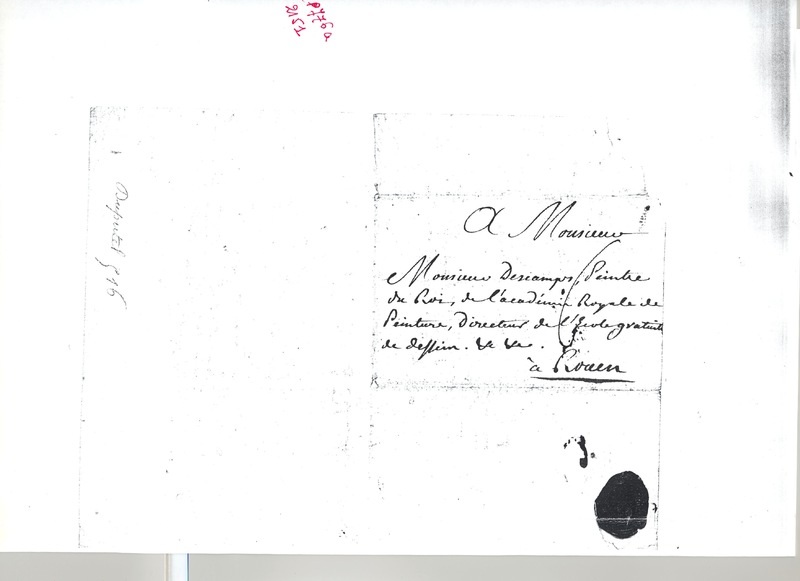 A Monsieur
Monsieur Descamps, Peintre
du Roi, de l'académie Royale de
Peinture, Directeur de l'Ecole gratuite
de dessein. &c &c.
à Rouen